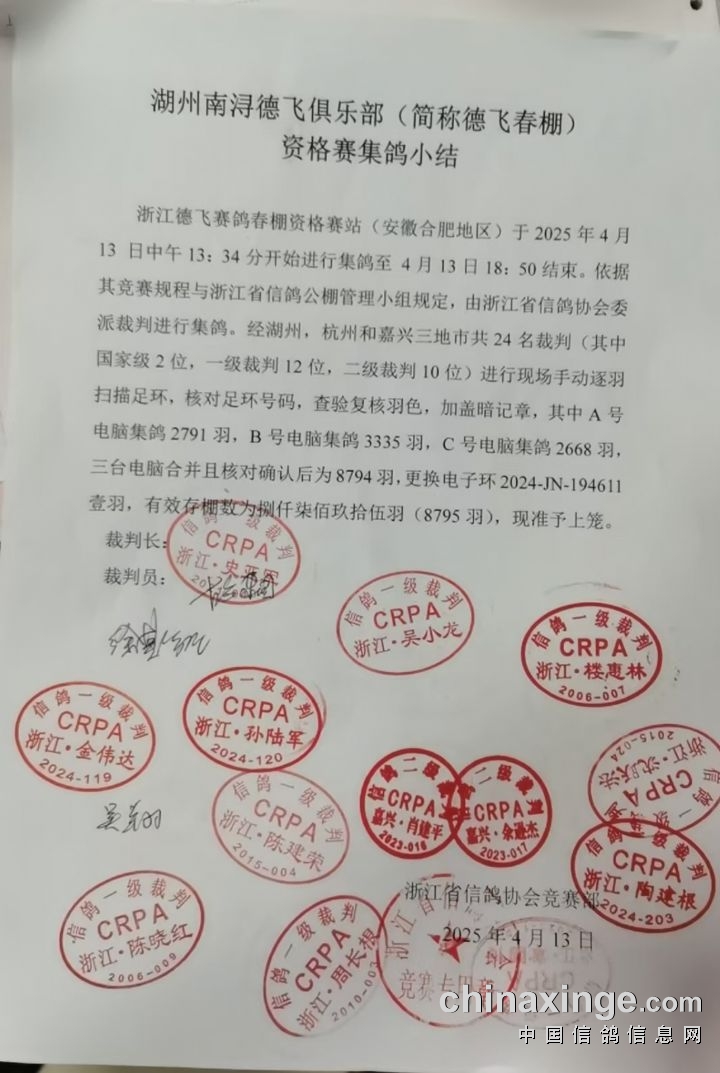 湖州南浔德飞俱乐部（简称德飞春棚）
资格赛集鸽小结
浙江德飞赛鸽春棚资格赛站（安徽合肥地区）于 2025 年 4 月
13 日中午 13：34 分开始进行集鸽至 4 月 13 日 18：50 结束。依据
其竞赛规程与浙江省信鸽公棚管理小组规定，由浙江省信鸽协会委
派裁判进行集鸽。经湖州，杭州和嘉兴三地市共 24 名裁判（其中
国家级 2 位，一级裁判 12 位，二级裁判 10 位）进行现场手动逐羽
扫描足环，核对足环号码，查验复核羽色，加盖暗记章，其中 A 号
电脑集鸽 2791 羽，B 号电脑集鸽 3335 羽，C 号电脑集鸽 2668 羽，
三台电脑合并且核对确认后为 8794 羽，更换电子环 2024-JN-194611
壹羽，有效存棚数为捌仟柒佰玖拾伍羽（8795 羽），现准予上笼。
裁判长：
信鸽一级裁判
CRPA
浙江·史亚
裁判员：
信鸽一级裁判
CRPA
浙江·吴小龙
信鸽一级裁判
CRPA
浙江·楼惠林
2006-007
信鸽一级裁判
CRPA
浙江·金伟达
2024-119
信鸽一级裁判
CRPA
浙江·孙陆军
2024-120
信鸽一级裁判
CRPA
浙江·陈建荣
2015-004
信鸽二级裁判
CRPA
嘉兴·肖建平
2023-016
二级裁判
CRPA
嘉兴·余逊杰
2023-017
CRPA
2015-024
信鸽一级裁判
CRPA
浙江·陶建根
2024-203
信鸽一级裁判
CRPA
浙江·陈晓红
2006-009
信鸽一级裁判
CRPA
浙江·周长根
2010-003
浙江省信鸽协会竞赛部
2025 年 4 月 13 日
浙江省信
竞赛专用章
CRPA
chinaxinge.com
中国信鸽信息网